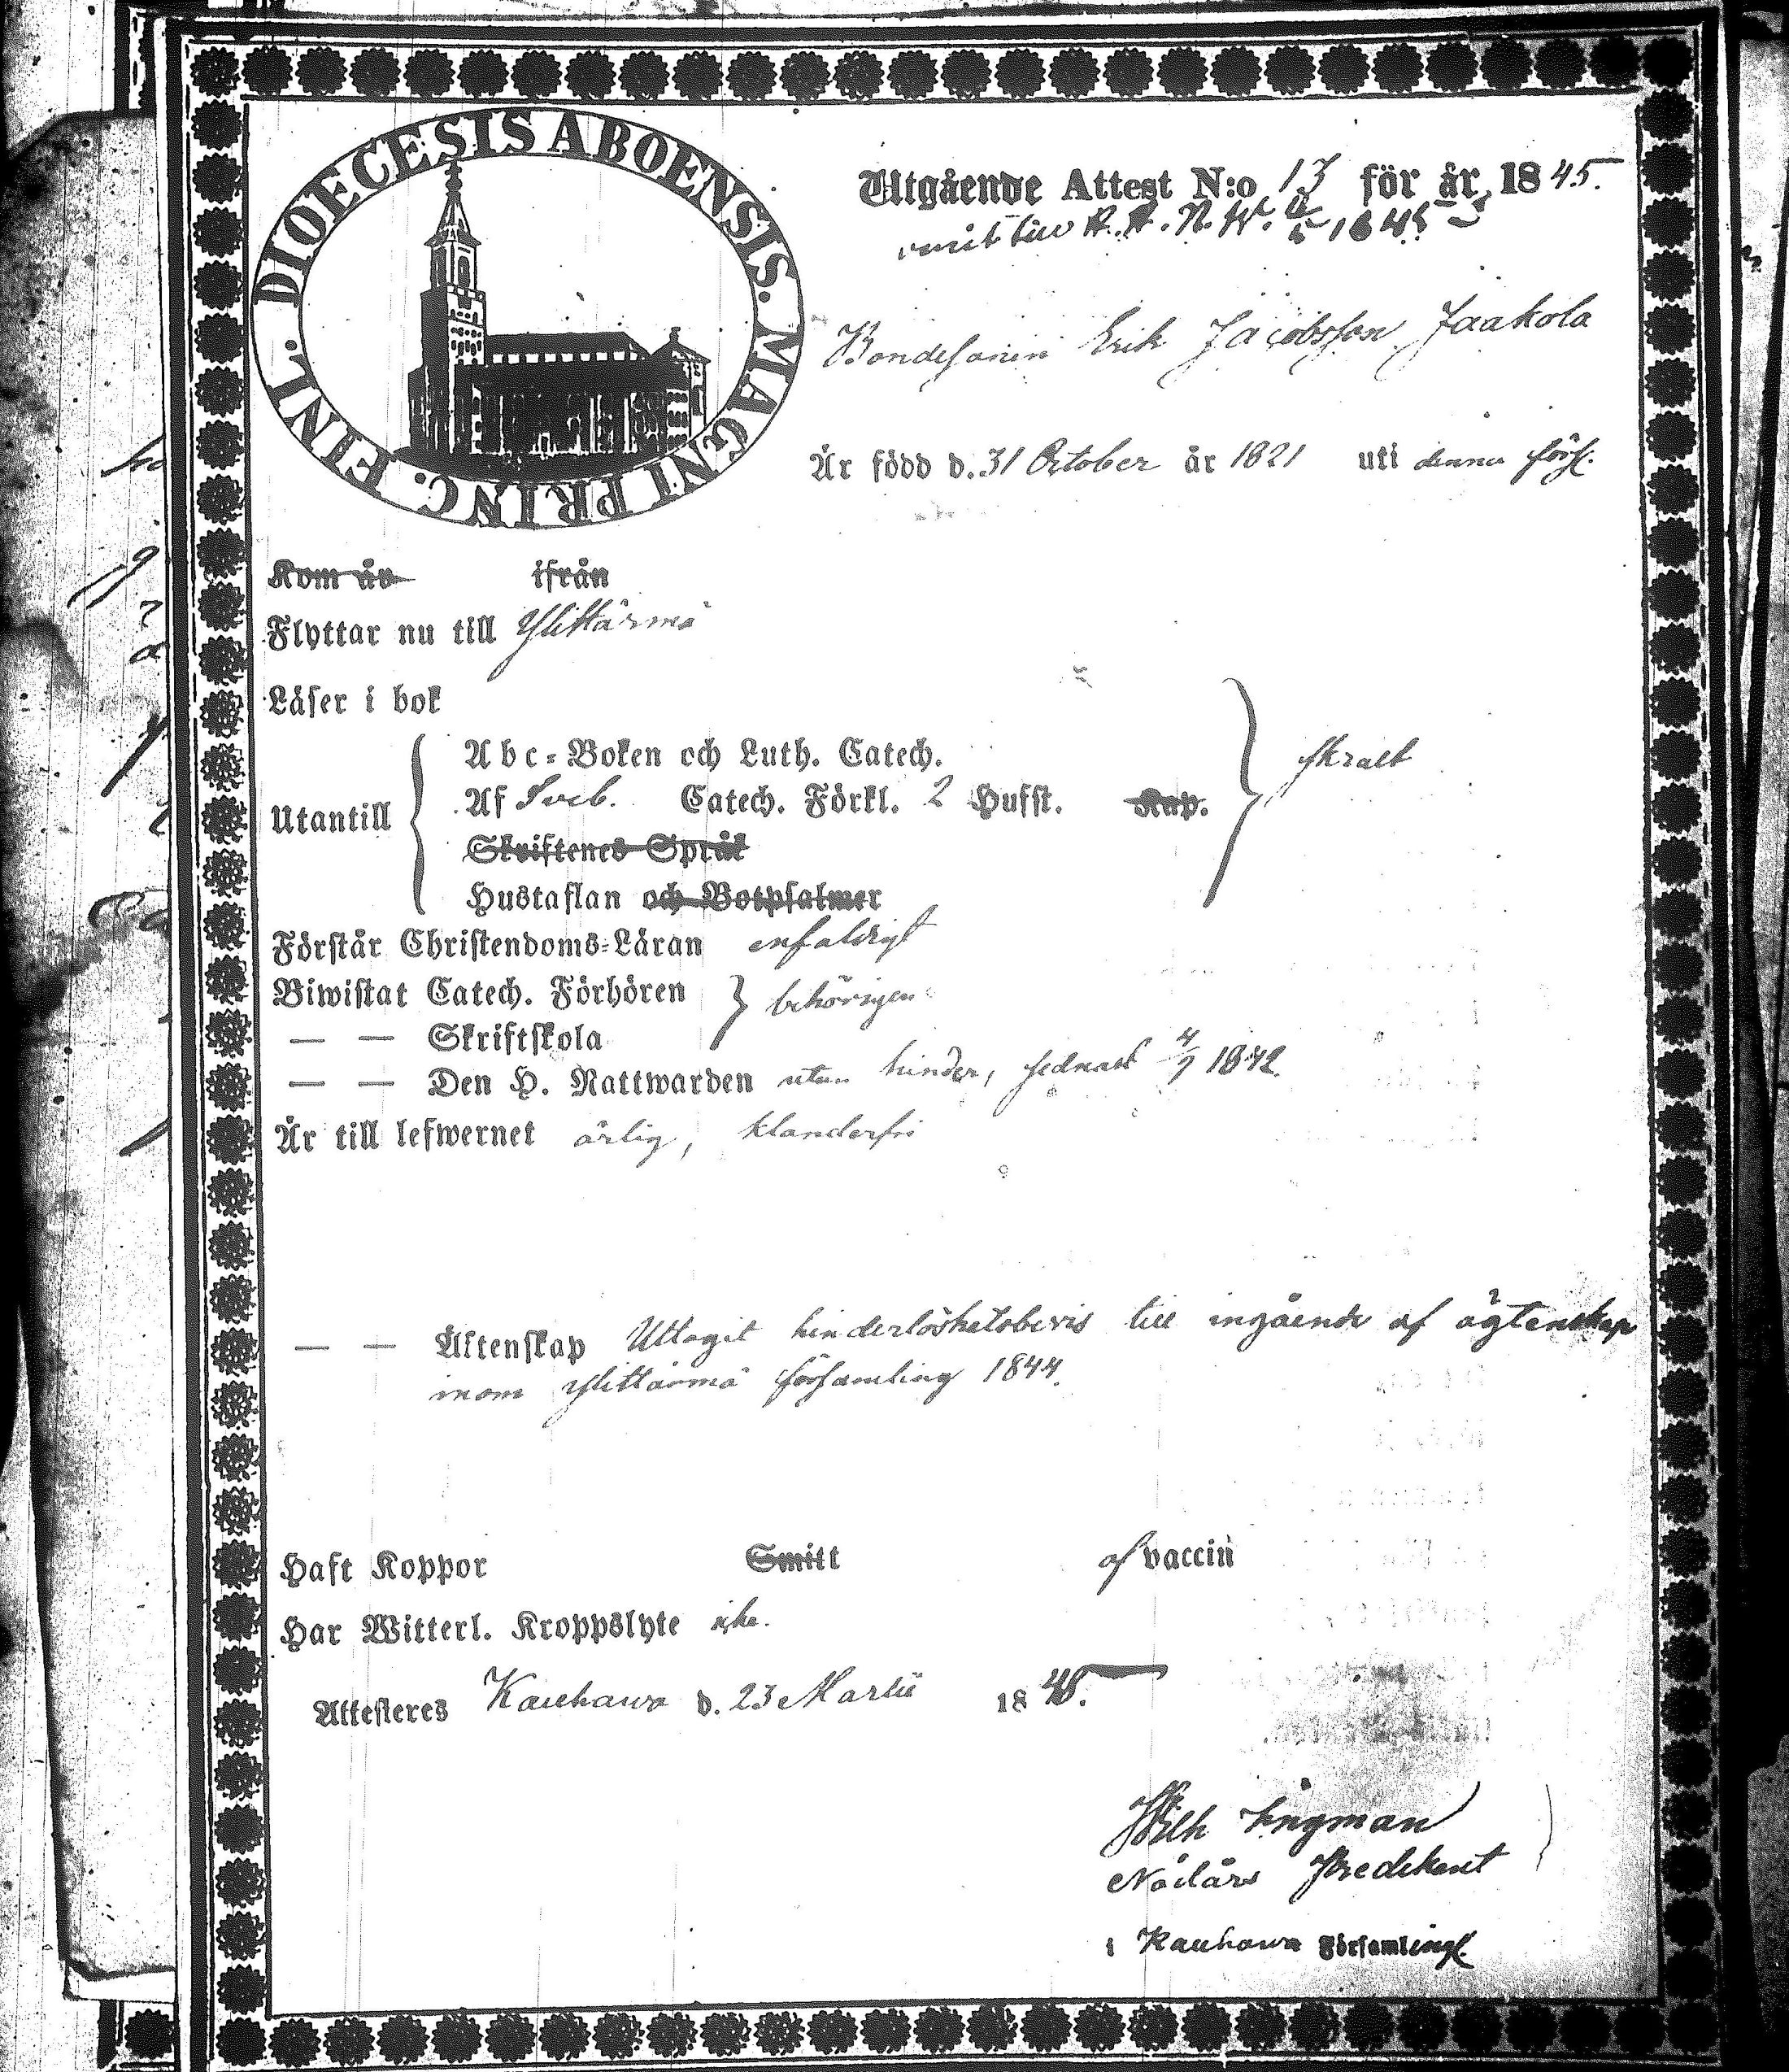 DIOECESIS ABOENSIS. MAGNI PRINC. FINL.
Utgående Attest N:o 13 för år 1845.
Bondesonen Erik Jacobsson Jaakola
Är född d. 31 October år 1821 uti denna förs.
Kom år ifrån
Flyttar nu till Ylittärmä
Läser i bok
Abc-Boken och Luth. Catech.
Utantill Af Sveb. Catech. Förkl. 2 Hufst. Kap. skralt
Skriftenes Språk
Hustaflan och Botpsalmer
Förstår Christendoms-Läran enfaldigt
Biwistat Catech. Förhören behörigen
— — Skriftskola
— — Den H. Nattwarden utan hinder, sednast 4/9 1842.
Är till lefwernet ärlig, klanderfri
— — Äktenskap Uttagit hinderlöshetsbevis till ingående af ägtenskap
inom Ylittärmä församling 1844.
Haft Koppor Smitt af vaccin
Har Witterl. Kroppslyte icke.
Attesteres Kauhawa d. 23 Martii 18
Wilh Ingman
Nödårs Predikant
i Kauhawa Församling